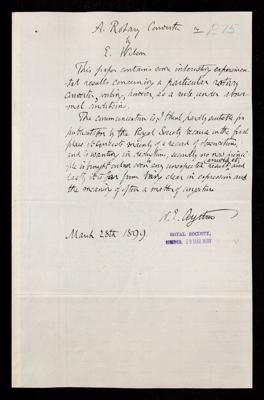 A Rotary Converter
275
by
E. Wilson
This paper contains some interesting experimen-
tal results concerning a particular rotary
converter, working, however, as a rule, under abnor-
mal conditions.
The communication is, I think, hardly suitable for
publication by the Royal Society because in the first
place it consists mainly of a record of observations,
and is wanting in deductions, secondly no new princi-
ple is brought out nor even any unexpected result and
lastly it is far from being clear in expression and
the meaning is often a matter of conjecture
W. E. Ayrton
March 28th 1899.
ROYAL SOCIETY.
RECEIVED 29 MAR 1899